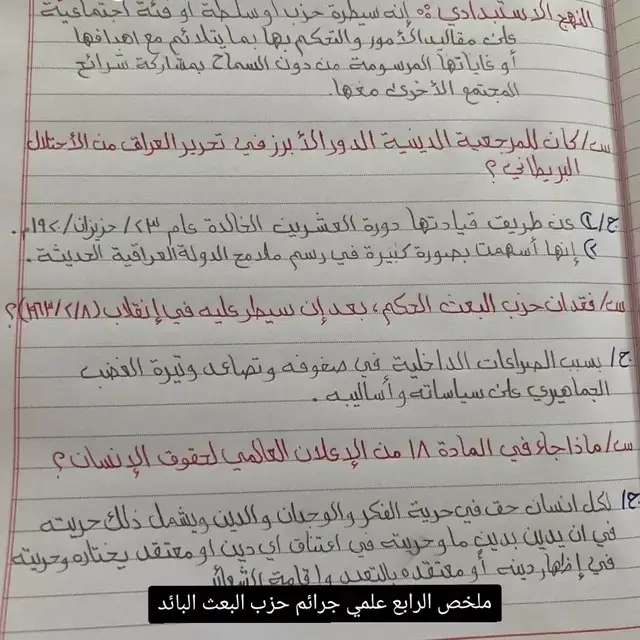 النهج الاستبدادي:- إنه سيطرة حزب او سلطة او فئة اجتماعية
على مقاليد الأمور والتحكم بها بما يتلائم مع اهدافها
أو غاياتها المرسومة من دون السماح بمشاركة شرائح
المجتمع الأخرى معها.
س/كان للمرجعية الدينية الدور الأبرز في تحرير العراق من الأحتلال
البريطاني؟
ج/١ عن طريق قيادتها دورة العشرين الخالدة عام ٢٣/حزيران/١٩٢٠م.
٢ إنها أسهمت بصورة كبيرة في رسم ملامح الدولة العراقية الحديثة.
س/فقدان حزب البعث الحكم، بعد إن سيطر عليه في إنقلاب (١٩٦٣/٢/٨)؟
ج/ بسبب الصراعات الداخلية في صفوفه وتصاعد وتيرة الغضب
الجماهيري على سياساته وأساليبه.
س/ماذا جاء في المادة ١٨ من الإعلان العالمي لحقوق الإنسان؟
ج/ لكل انسان حق في حرية الفكر والوجدان والدين ويشمل ذلك حريته
في ان يدين بدين ما وحريته في اعتناق اي دين او معتقد يختاره وحريته
في إظهار دينه أو معتقده بالتعبد واقامة الشعائر
ملخص الرابع علمي جرائم حزب البعث البائد